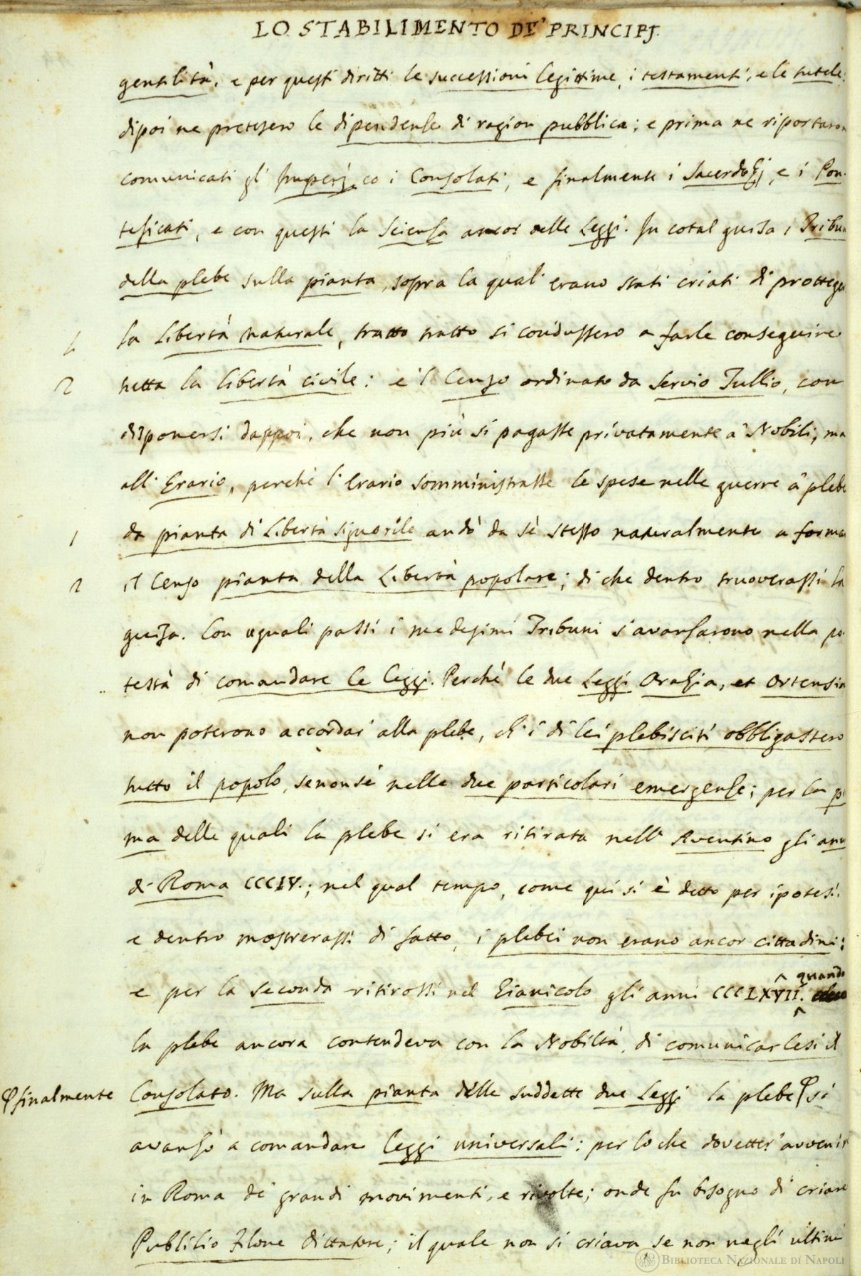 LO STABILIMENTO DE' PRINCIPJ
gentilità, e per questi diritti le successioni legittime, i testamenti, e le tutele:
dipoi ne pretesero le dipendenze di ragion pubblica; e prima ne riportaron
comunicati gl' Imperj co i Consolati, e finalmente i Sacerdozj, e i Pon-
teficati, e con questi la Scienza ancor delle Leggi. In cotal guisa i Tribu
della plebe sulla pianta, sopra la qual' erano stati criati di protteger
1 la Libertà naturale, tratto tratto si condussero a farle conseguire
2 tutta la libertà civile: e 'l Censo ordinato da Servio Tullio, con
disponersi dappoi, che non più si pagasse privatamente a' Nobili, ma
all' Erario, perchè l' Erario somministrasse le spese nelle guerre a' plebe
1 da pianta di Libertà signorile andò da sè stesso naturalmente a forma
2 il Censo pianta della Libertà popolare; di che dentro truoverassi la
guisa. Con uguali passi i medesimi Tribuni s'avanzarono nella po
testà di comandare le leggi. Perchè le due Leggi Orazia, et Ortensia
non poterono accordar' alla plebe, ch' i di lei plebisciti obbligassero
tutto il popolo, senonsè nelle due particolari emergenze; per la pri
ma delle quali la plebe si era ritirata nell' Aventino gli anni
di Roma CCCIV.; nel qual tempo, come qui si è detto per ipotesi,
e dentro mostrerassi di fatto, i plebei non erano ancor cittadini:
e per la seconda ritirossi nel Gianicolo gli anni CCCLXVII. quando
la plebe ancora contendeva con la Nobiltà, di comunicarlesi il
Consolato. Ma sulla pianta delle suddette due Leggi la plebe finalmente si
avanzò a comandare leggi universali: per lo che dovetter' avvenir
in Roma de' grandi movimenti, e rivolte; onde fu bisogno di criare
Publilio Filone dittatore; il quale non si criava se non negli ultimi
BIBLIOTECA NAZIONALE DI NAPOLI